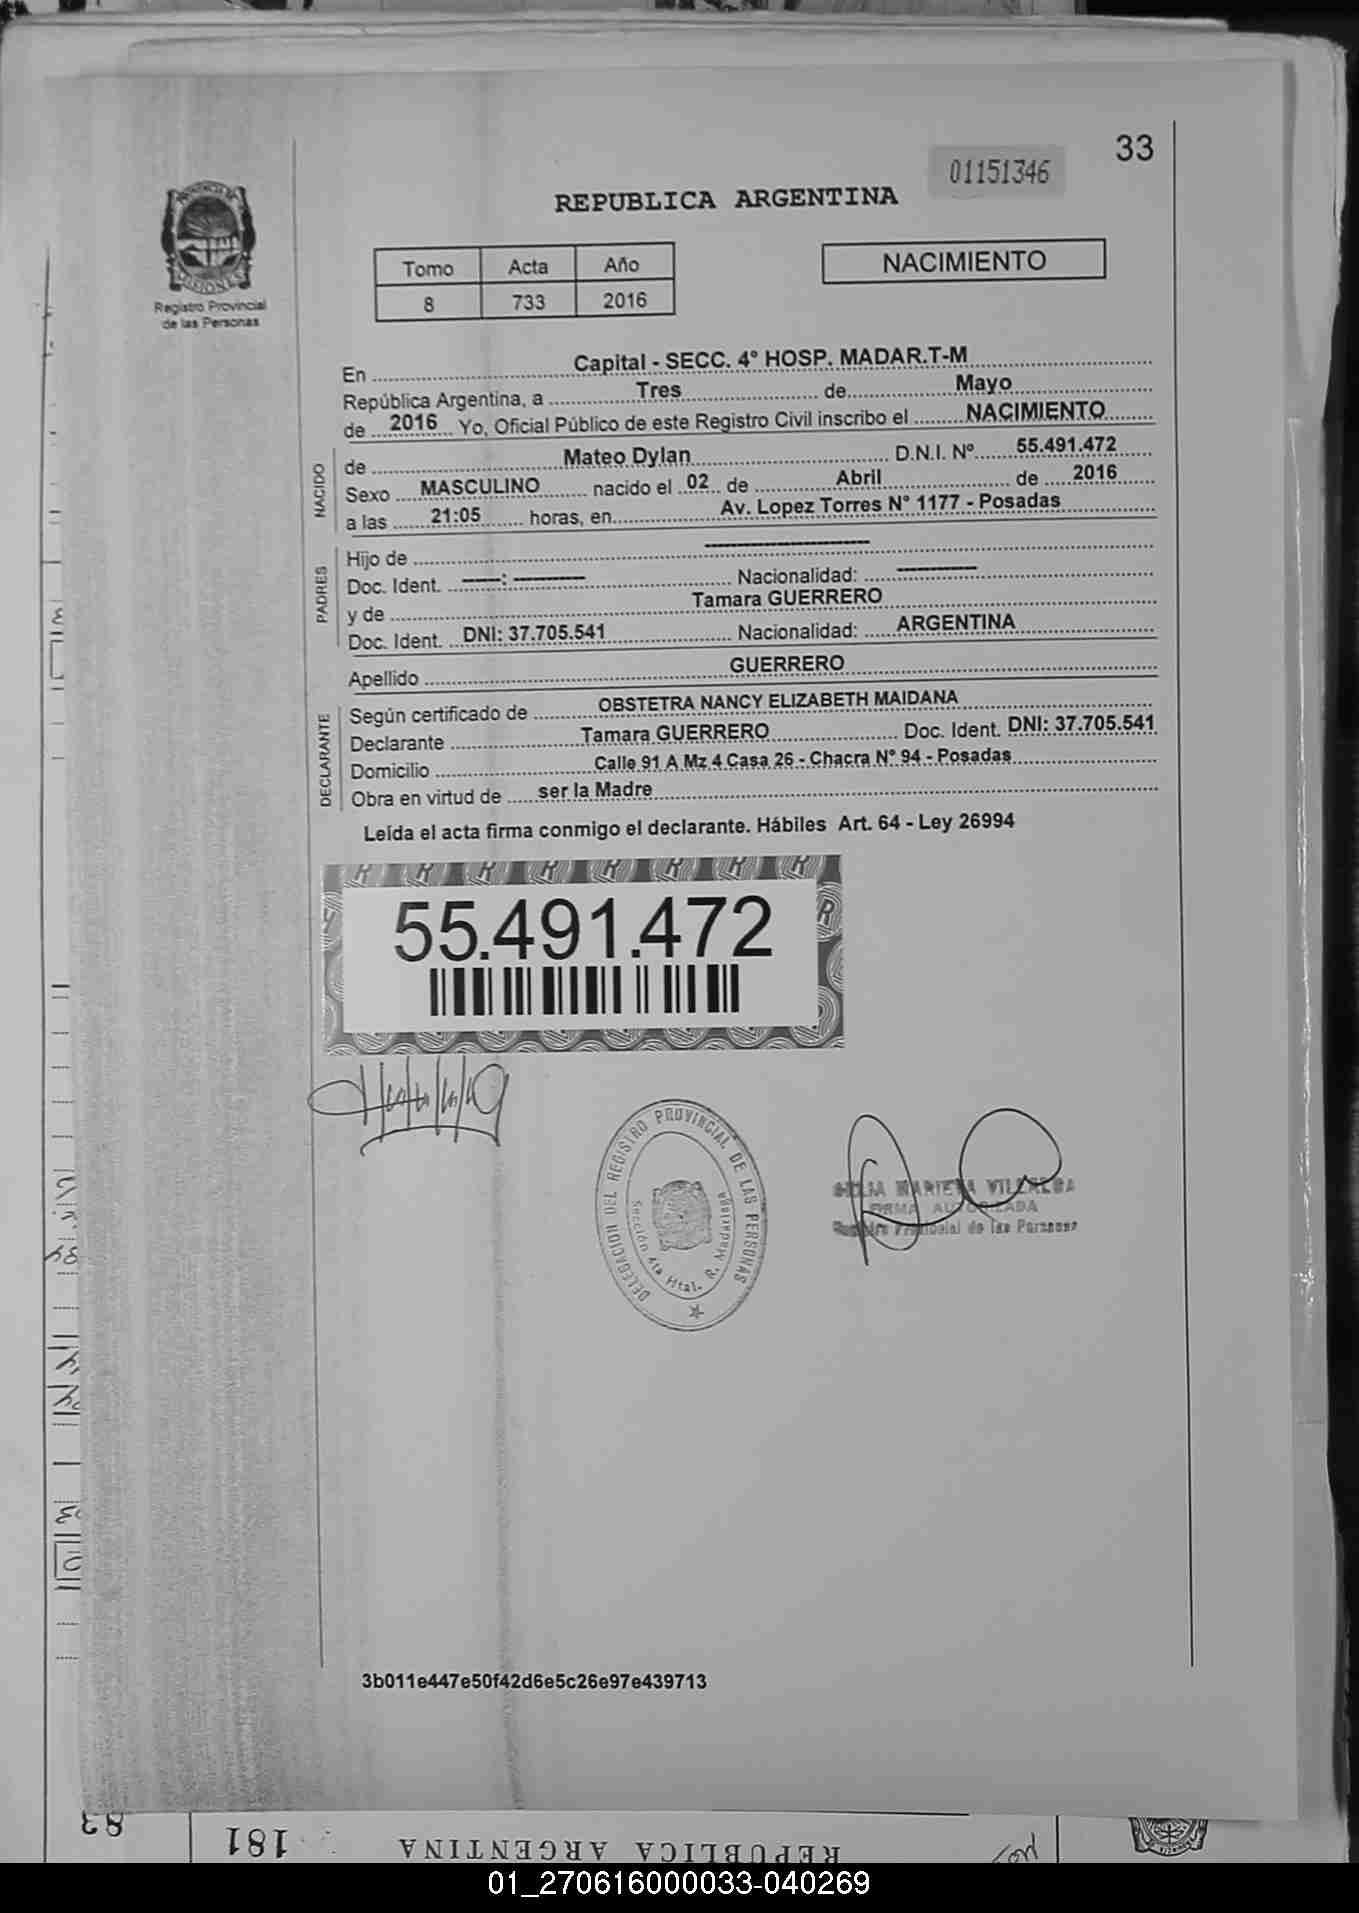 33
01151346
REPUBLICA ARGENTINA
PROVINCIA DE
MISIONES
Registro Provincial
de las Personas
Tomo Acta Año
8 733 2016
NACIMIENTO
En Capital - SECC. 4° HOSP. MADAR.T-M
República Argentina, a Tres de Mayo
de 2016 Yo, Oficial Público de este Registro Civil inscribo el NACIMIENTO
NACIDO
de Mateo Dylan D.N.I. Nº 55.491.472
Sexo MASCULINO nacido el 02 de Abril de 2016
a las 21:05 horas, en Av. Lopez Torres N° 1177 - Posadas
PADRES
Hijo de --------------------
Doc. Ident. -----: --------- Nacionalidad: ----------
y de Tamara GUERRERO
Doc. Ident. DNI: 37.705.541 Nacionalidad: ARGENTINA
Apellido GUERRERO
DECLARANTE
Según certificado de OBSTETRA NANCY ELIZABETH MAIDANA
Declarante Tamara GUERRERO Doc. Ident. DNI: 37.705.541
Domicilio Calle 91 A Mz 4 Casa 26 - Chacra N° 94 - Posadas
Obra en virtud de ser la Madre
Leída el acta firma conmigo el declarante. Hábiles Art. 64 - Ley 26994
55.491.472
DELEGACION DEL REGISTRO PROVINCIAL DE LAS PERSONAS
Sección 4ta Htal. R. Madariaga
VILLALBA
FIRMA AUTORIZADA
Registro Provincial de las Personas
3b011e447e50f42d6e5c26e97e439713
83
181
REPUBLICA ARGENTINA
01_270616000033-040269